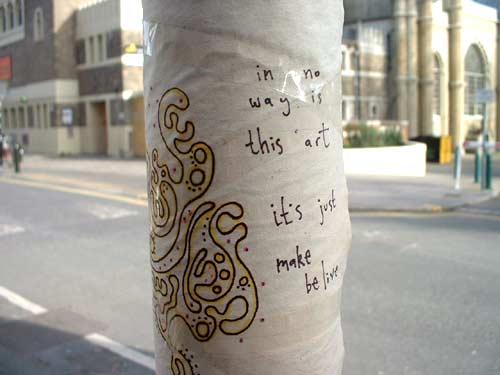 in no
way is
this art
it's just
make
be live